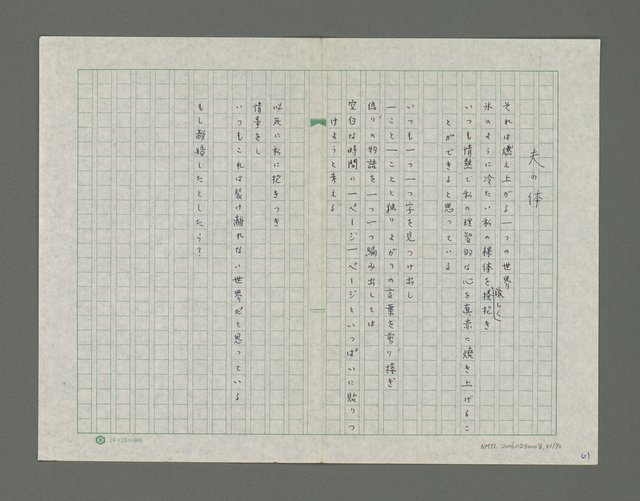 夫の体
それは燃え上がる一つの世界
氷のように冷たい私の裸体を優しく抱き
いつも情熱で私の理智的な心を真赤に焼き上げるこ
とができると思っている
いつも一つ一つ字を見つけ出し
一こと一ことと独りよがりの言葉を剪り接ぎ
偽りの物語を一つ一つ編み出しては
空白な時間に一ページ一ページといっぱいに貼りつ
けようと考える
必死に私に抱きつき
情事をし
いつもこれは裂け離れない世界だと思っている
もし離婚したとしたら?
24×25=600
NMTL 20060250008.41/70